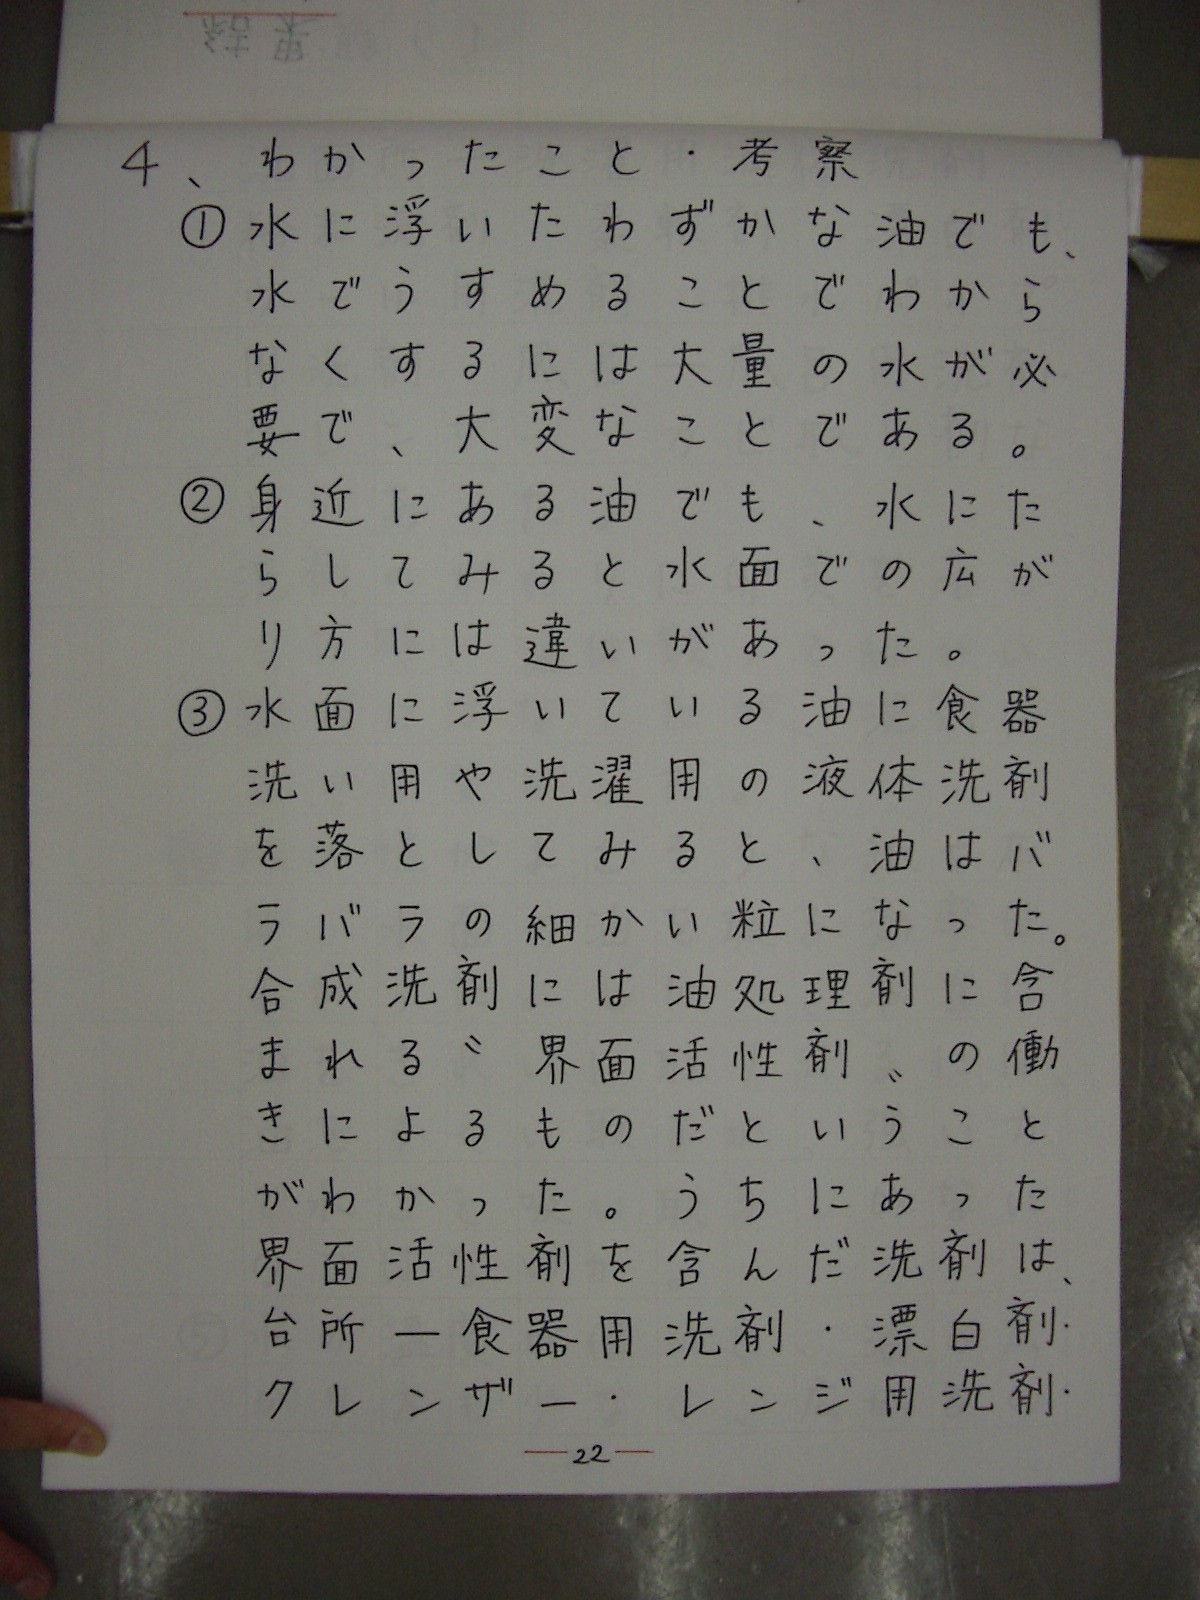 結果
4、わかったこと・考察
①水に浮いたわずかな油でも、
水でうすめることでわから
なくするには大量の水が必
要で、大変なことである。
②身近にある油でも、水にた
らしてみると水面での広が
り方には違いがあった。
③水面に浮いている油に食器
洗い用や洗濯用の液体洗剤
を落としてみると、油はバ
ラバラの細かい粒になった。
合成洗剤には油処理剤に含
まれる〝界面活性剤〟の働
きによるものだということ
がわかった。うちにあった
界面活性剤を含んだ洗剤は、
台所―食器用洗剤・漂白剤・
クレンザー・レンジ用洗剤・
22